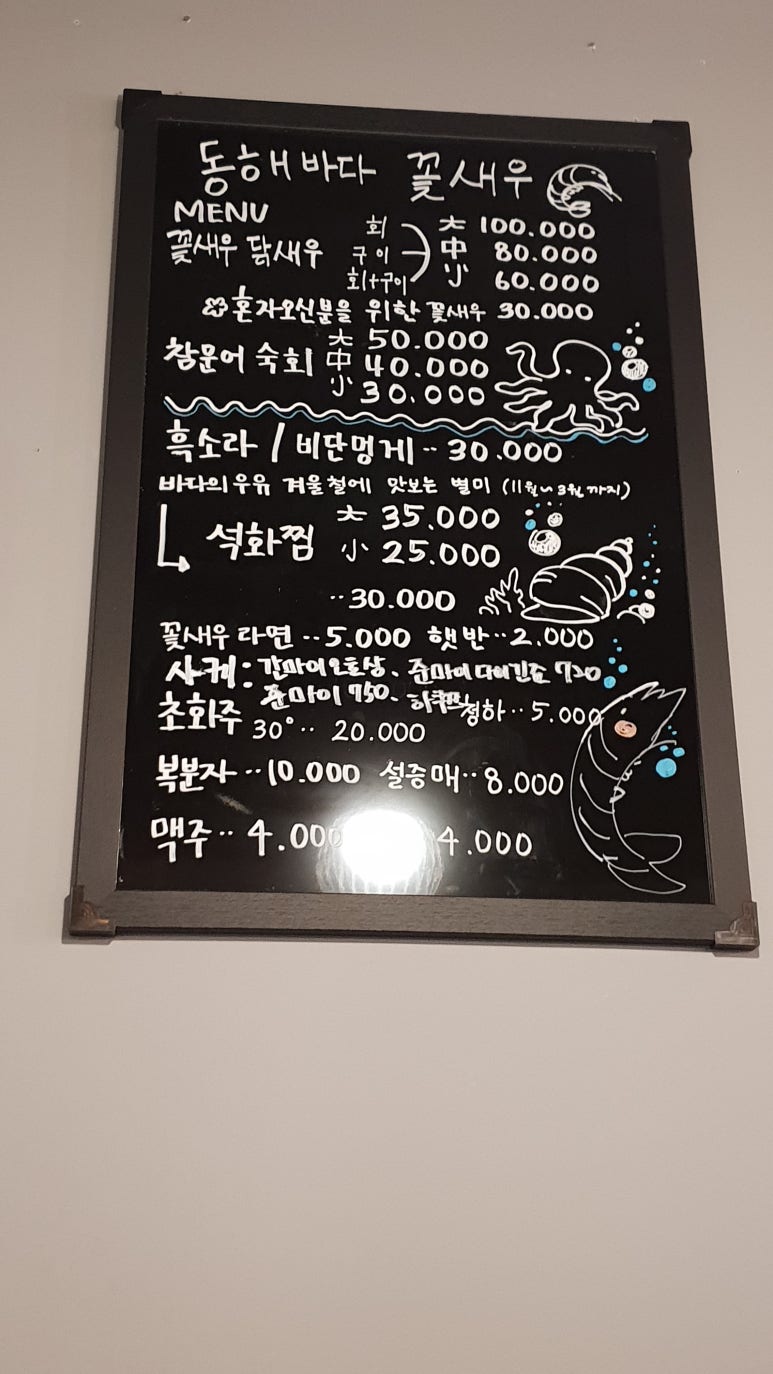 동해바다 꽃새우
MENU
꽃새우 닭새우 회 大 100.000
구이 中 80.000
회+구이 小 60.000
혼자오신분을 위한 꽃새우 30.000
참문어 숙회 大 50.000
中 40.000
小 30.000
흑소라 / 비단멍게 ·· 30.000
바다의우유 겨울철에 맛보는 별미 (11월~3월까지)
석화찜 大 35.000
小 25.000
·· 30.000
꽃새우 라면 ·· 5.000 햇반 ·· 2.000
사케: 간마이오토상. 준마이다이긴죠 720
준마이 750.
초화주 30° ·· 20.000 청하 ·· 5.000
복분자 ·· 10.000 설중매 ·· 8.000
맥주 ·· 4.000 4.000